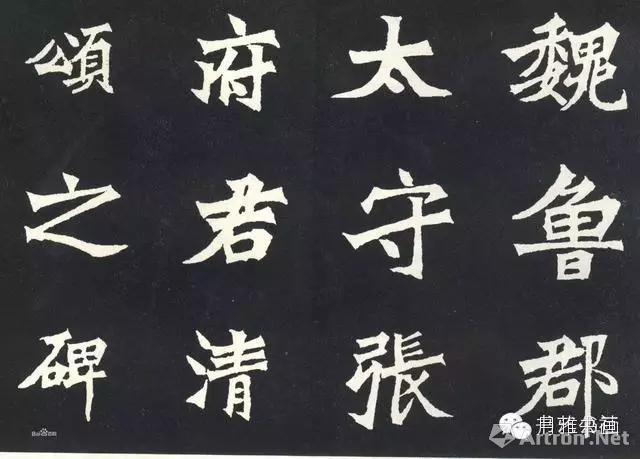 魏魯郡
太守張
府君清
頌之碑
Bai百科
月雅书画
Artron.Net